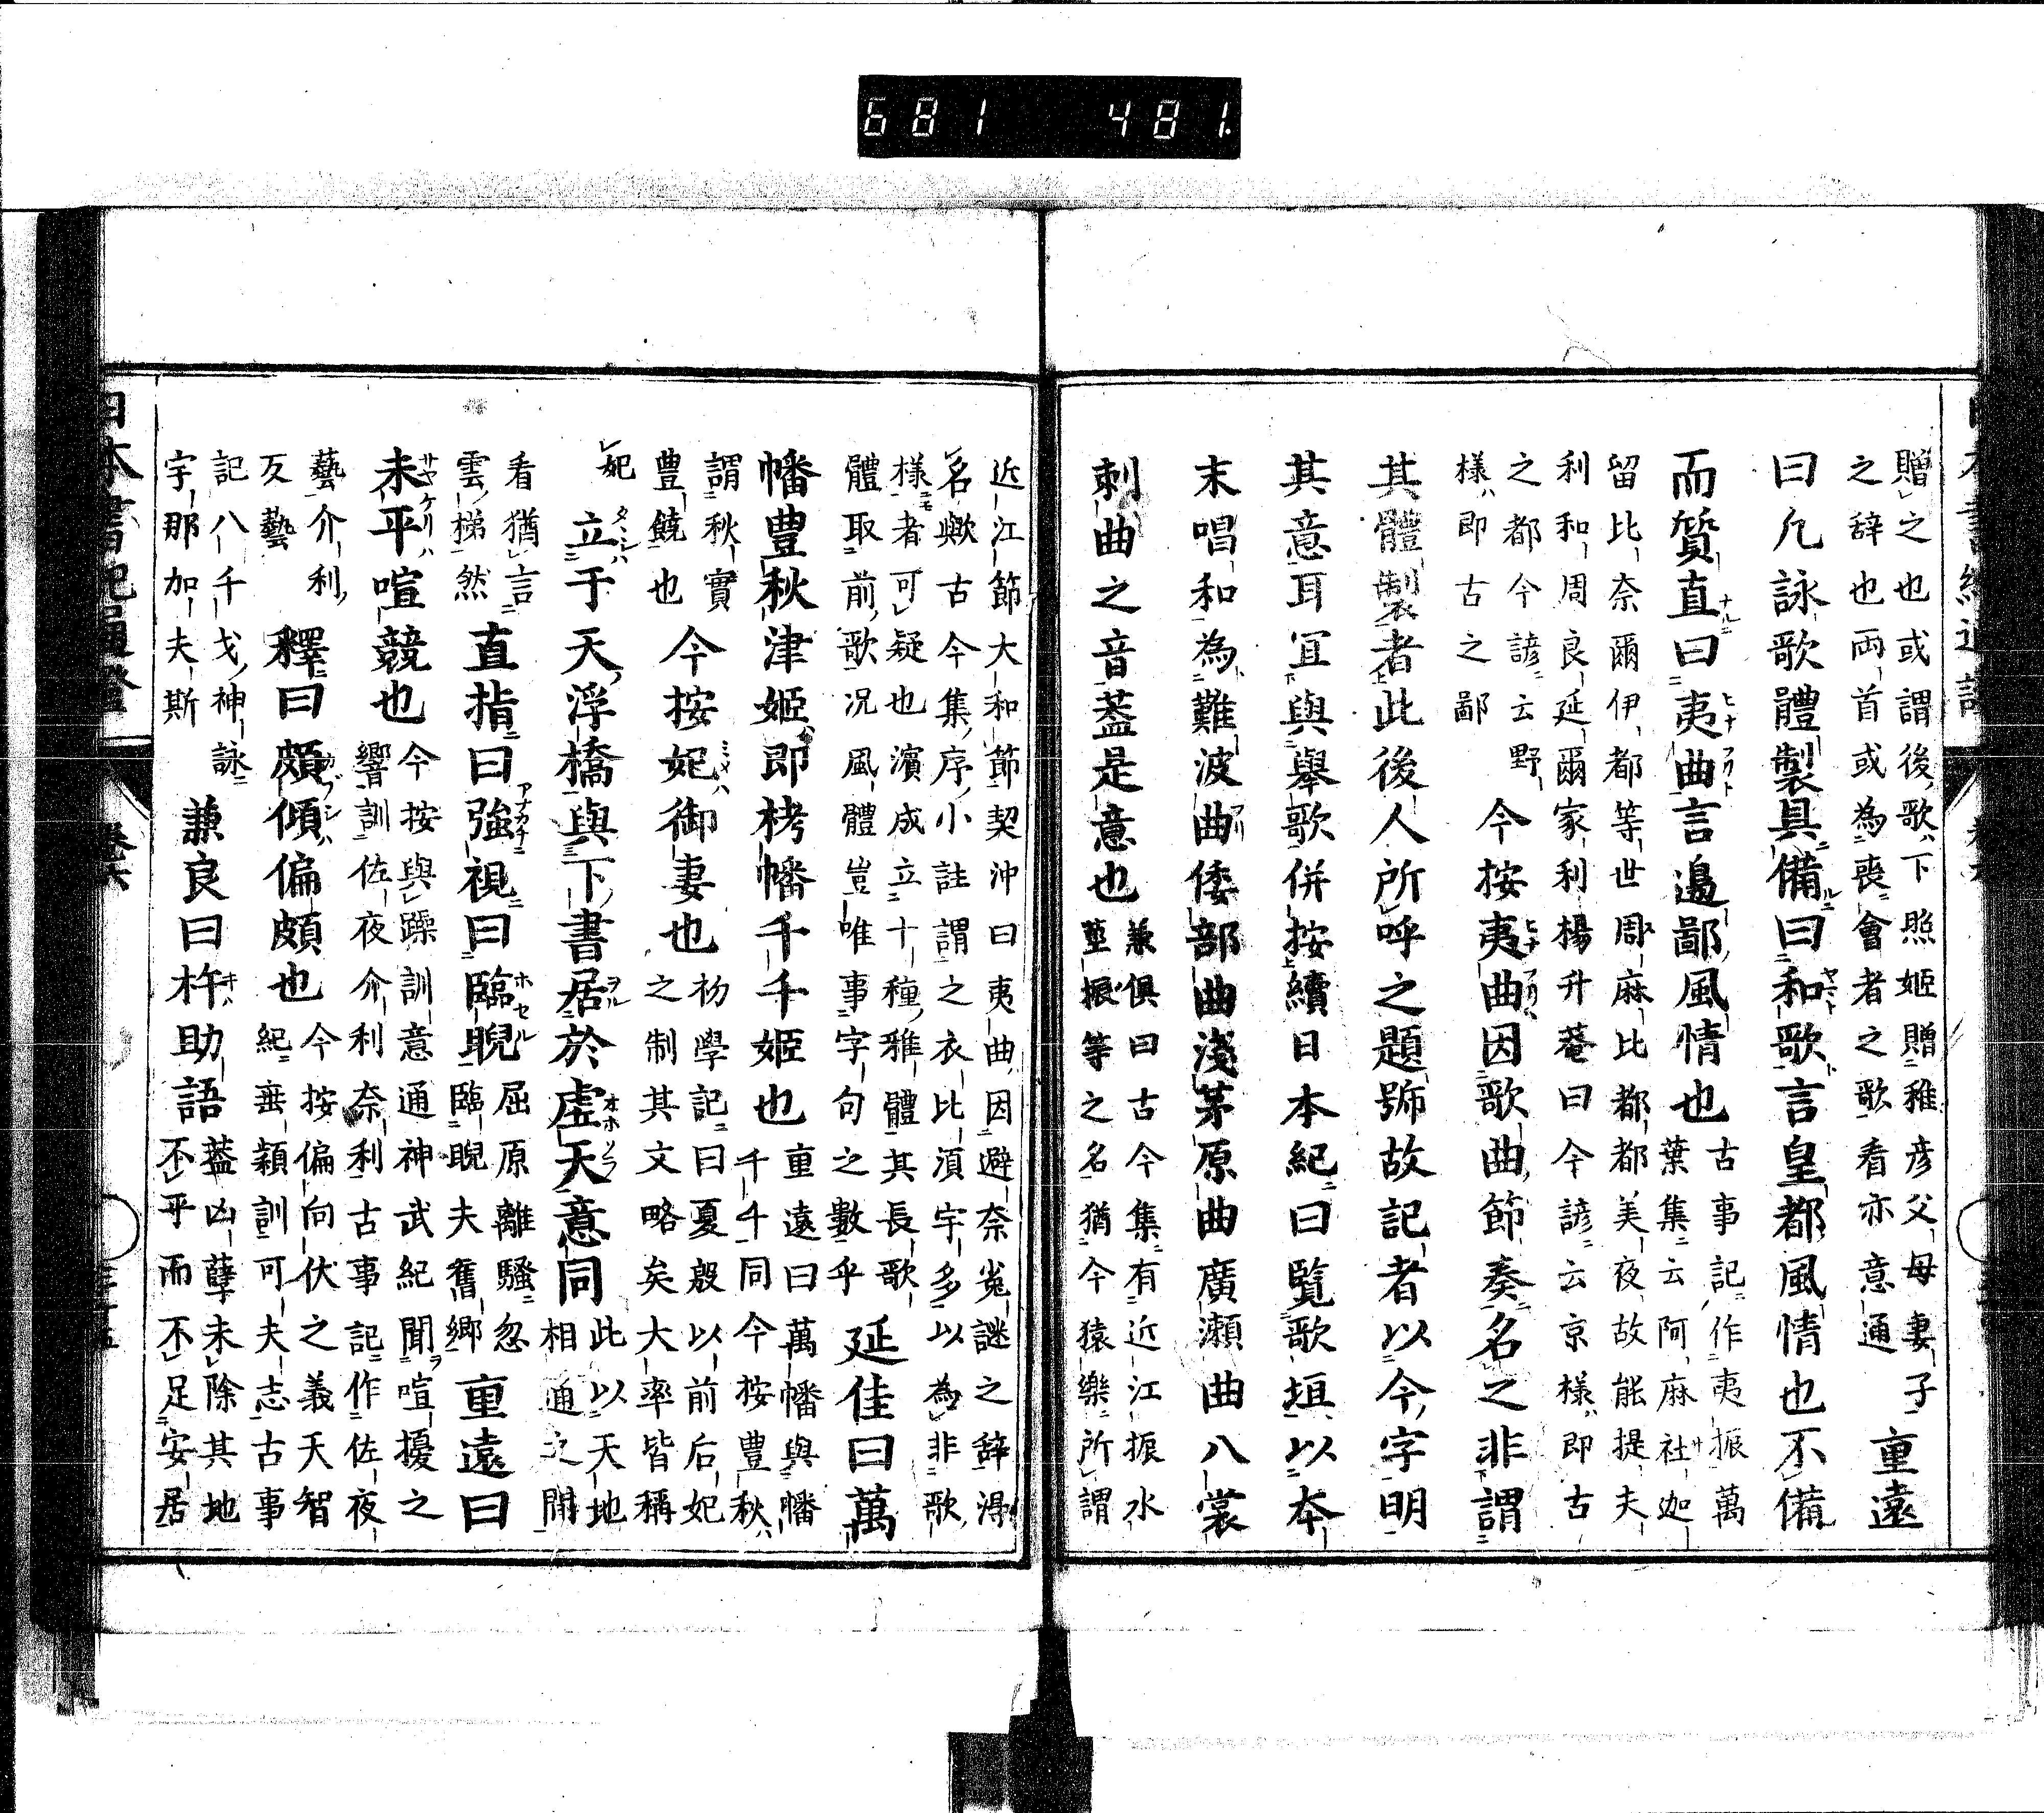 681 481
贈之也或謂後歌下照姬贈稚彦父母妻子
之辞也両首或為喪會者之歌看亦意通
重遠
曰凡詠歌體製具備曰和歌言皇都風情也不備
而質直曰夷曲言邉鄙風情也
古事記作夷振萬
葉集云阿麻社迦
留比奈爾伊都等世周麻比都都美夜故能提夫
利和周良延爾家利楊升菴曰今諺云京様即古
之都今諺云野
様即古之鄙
今按夷曲因歌曲節奏名之非謂
其體製者此後人所呼之題號故記者以今字明
其意耳冝與舉歌併按續日本紀曰覧歌垣以本
末唱和為難波曲倭部曲淺茅原曲廣瀬曲八裳
刺曲之音葢是意也
兼俱曰古今集有近江振水
莖振等之名猶今猿樂所謂
近江節大和節契沖曰夷曲因避奈嵬謎之辞得
名歟古今集序小註謂之衣比湏宇多以為非歌
様者可疑也濱成立十種雅體其長歌
體取前歌况風體豈唯事字句之數乎
延佳曰萬
幡豊秋津姬即栲幡千千姬也
重遠曰萬幡與幡
千千同今按豊秋
謂秋實
豊饒也
今按妃御妻也
初學記曰夏殷以前后妃
之制其文略矣大率皆稱
妃
立于天浮橋與下書居於虛天意同
此以天地
相通之間
看猶言
雲梯然
直指曰強視曰臨睨
屈原離騷忽
臨睨夫舊鄉
重遠曰
未平喧競也
今按與躁訓意通神武紀聞喧擾之
響訓佐夜介利奈利古事記作佐夜
藝介利
反藝
釋曰頗傾偏頗也
今按偏向伏之義天智
紀垂穎訓可夫志古事
記八千戈神詠
宇那加夫斯
兼良曰杵助語
葢凶孽未除其地
不平而不足安居
日本書紀通證
卷六